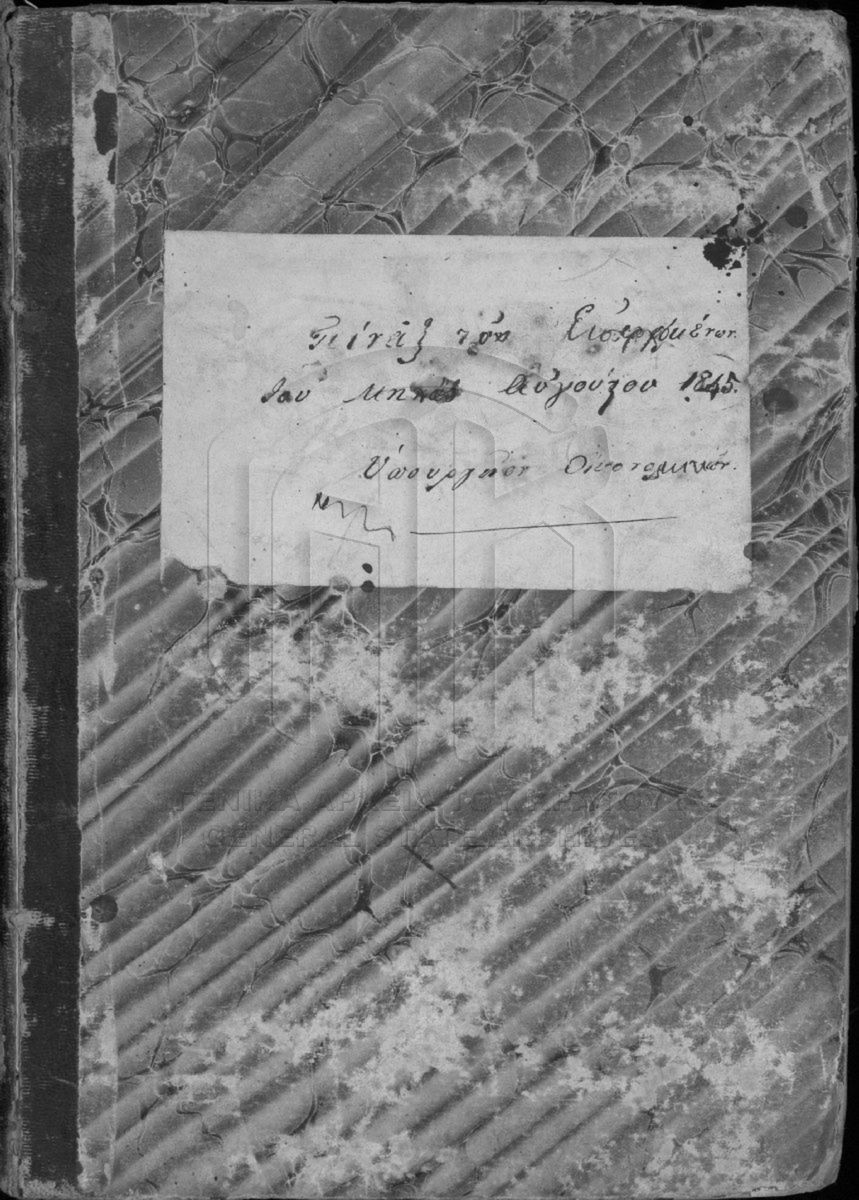 Πίναξ τῶν Εἰσερχομένων
τοῦ μηνὸς Αὐγούστου 1845.
Ὑπουργεῖον Οἰκονομικῶν.
ΓΕΝΙΚΑ ΑΡΧΕΙΑ ΤΟΥ ΚΡΑΤΟΥΣ
GENERAL STATE ARCHIVES